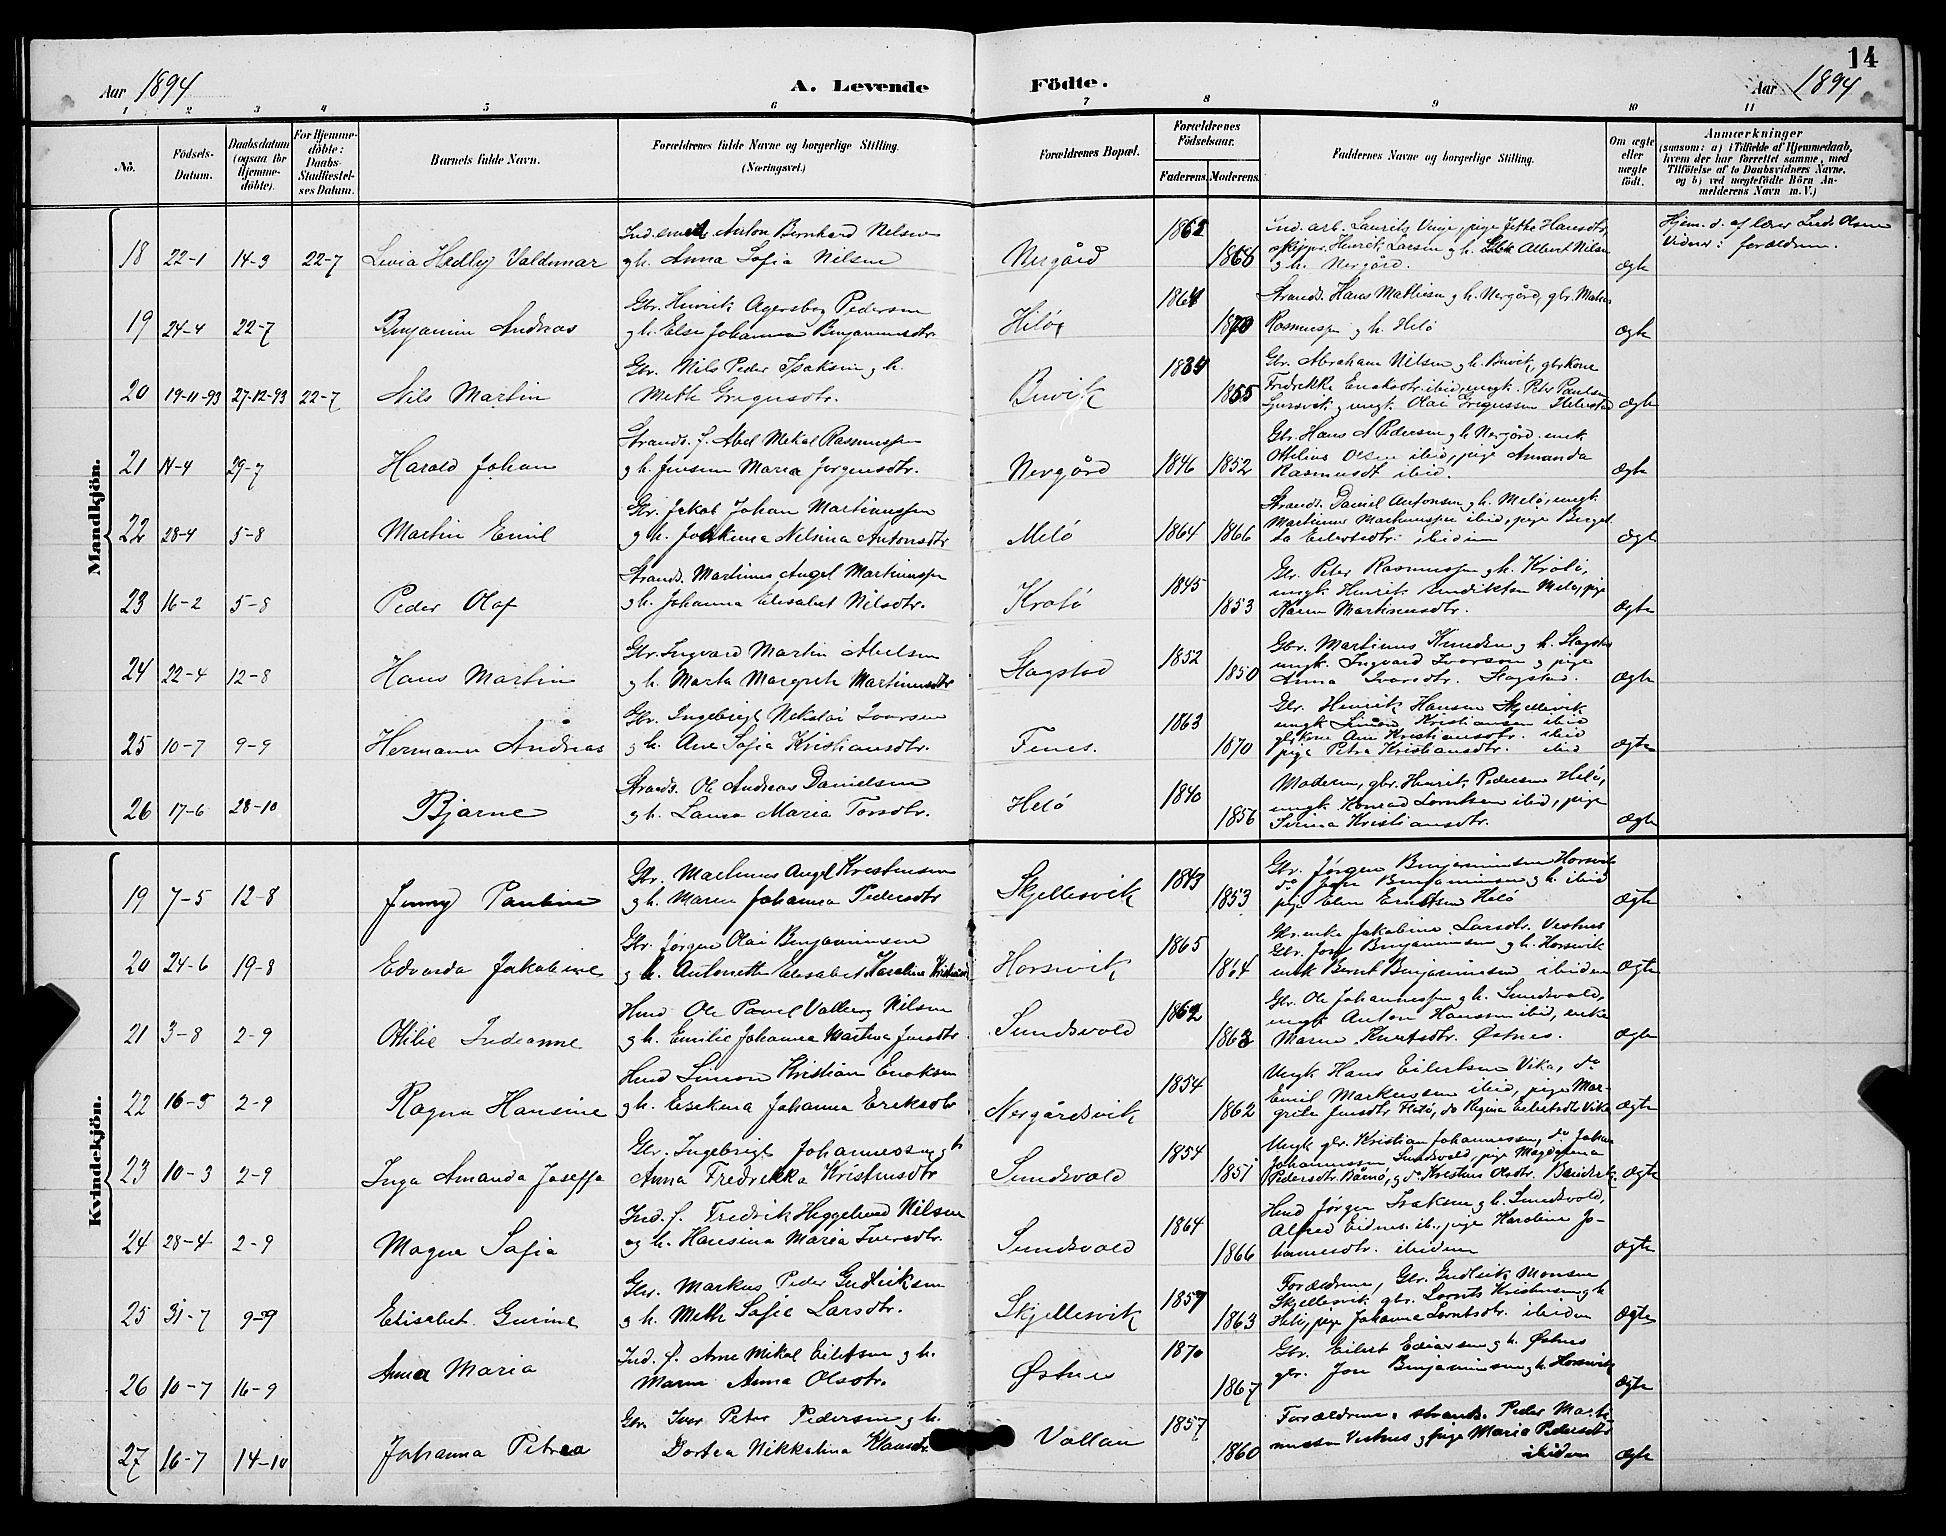 14
Aar 1894 A. Levende Födte. Aar 1894
1 2 3 4 5 6 7 8 9 10 11
No. Födsels-Datum. Daabsdatum (ogsaa for Hjemmedöbte). For Hjemmedöbte: Daabs-Stadfæstelses Datum. Barnets fulde Navn. Forældrenes fulde Navne og borgerlige Stilling. (Næringsvei.) Forældrenes Bopæl. Forældrenes Födselsaar. Faderens. Moderens. Faddernes Navne og borgerlige Stilling. Om ægte eller uægte födt. Anmærkninger (saasom: a) i Tilfælde af Hjemmedaab, hvem der har forrettet samme, med Tilföielse af to Daabsvidners Navne, og b) ved uægtefödte Börn Anmelderens Navn m. V.)
Mandkjön.
18 22-1 14-3 22-7 Anton Bernhard Nilsen
g h. Anna Sofia Nilsen Nergård 1868 ægte
Ind. arb. Laurits
Henrik Larsen g h. Albert Nilsen
g h. Nergård.
Hjem. d. af lærer Olsen
Vidner: forældrene.
19 24-4 22-7 Benjamin Andreas Gbr. Henrik Agersborg Pedersen
g h. Else Johanna Benjaminsdtr. Helö 1864 1870 ægte
Strands. Hans Mathisen g h. Nergård, gbr.
Rasmussen g h. Helö
20 19-11-93 27-12-93 22-7 Nils Martin Gbr. Nils Peder Isaksen g h.
Meth Gregusdtr. Buvik 1855 ægte
Gbr. Abraham Nilsen g h. Buvik, gbrkone
Fredrikke ibid, ungk. Peter Paulsen
g ungk. Olai Gregussen
21 14-4 29-7 Harald Johan Strands. f. Abel Mikal Rasmussen
g h. Jensine Maria Jörgensdtr. Nergård 1846 1852 ægte
Gbr. Hans A Pedersen g h Nergård. enk
Othilius Olsen ibid, pige Amanda
Rasmusdt ibid.
22 28-4 5-8 Martin Emil Gbr. Jakob Johan Martinussen
g h. Joakima Nilsina Antonsdtr Melö 1864 1866 ægte
Strands. Daniel Antonsen g h. Melö, ungk.
Martinus Martinussen ibid, pige
ibidem
23 16-2 5-8 Peder Olaf Strands. Martinus Angel Martinussen
g h. Johanna Elisabet Nilsdtr. Krotö 1845 1853 ægte
Gbr. Peter Rasmussen g h. Krotö,
ungk. Henrik Melö, pige
Karen Martinusdtr.
24 22-4 12-8 Hans Martin Gbr. Ingvard Martin Abelsen
g h. Marta Margrete Martinusdtr Slagstad 1852 1850 ægte
Gbr. Martinus Knudsen g h. Slagstad
ungk. Ingvard Ivarson g pige
Anna Ivarsdtr. Slagstad.
25 10-7 9-9 Hermann Andreas Gbr. Ingebrigt Nikolai Ivarsen
g h. Ane Sofia Kristiansdtr. Fenes. 1863 1870 ægte
Gbr. Henrik Hansen Skjellesvik
ungk. Simon Kristiansen ibid
gbrkone Ane Kristiansdtr. ibid
pige Petra Kristiansdtr. ibid
26 17-6 28-10 Bjarne Strands. Ole Andreas Danielsen
g h. Laura Maria Torsdtr. Helö 1840 1856 ægte
Moderen, gbr. Henrik Pedersen Helö,
ungk. Konrad Lorntsen ibid, pige
Serina Kristiansdtr.
Kvindekjön.
19 7-5 12-8 Jenny Pauline Gbr. Martinus Angel Kristensen
g h. Maren Johanna Pedersdtr Skjellesvik 1843 1853 ægte
Gbr. Jörgen Benjaminsen Horsvik
do Jon Benjaminsen g h. ibid
pige Helö
20 24-6 19-8 Edvarda Jakobine Gbr. Jörgen Olai Benjaminsen
g h. Antonette Elisabet Karolina Horsvik 1865 1864 ægte
Gbr. enke Jakobine Larsdtr. Vestnes
Gbr. Jon Benjaminsen g h. Horsvik
enk Bernt Benjaminsen ibidem
21 3-8 2-9 Otilie Indianne Hmd Ole Pavel Valberg Nilsen
g h. Emilie Johanna Martina Jensdtr. Sundsvold 1862 1863 ægte
Gbr. Ole Johannessen g h. Sundsvold,
ungk Anton Hanssen ibid, enke
Maren Knutsdtr. Östnes.
22 16-5 2-9 Ragna Hansine Hmd Simon Kristian Enoksen
g h. Esekina Johanna Eriksdtr Nergårdsvik 1854 1862 ægte
Ungk Hans Eilertsen Vika, do
Emil Markussen ibid, pige Mar-
grete Jensdtr Flatö, do Regina Eilertsdtr Vika
23 10-3 2-9 Inga Amanda Joseffa Gbr. Ingebrigt Johannessen g h
Anna Fredrikka Kristensdtr Sundsvold 1854 1857 ægte
Ungk gbr. Kristian Johannessen, do Johan
Johannessen Sundsvold, pige Magdalena
Pedersdtr. g do Olsdtr.
24 28-4 2-9 Magna Sofia Ind. f. Fredrik Heggelund Nilsen
og h. Hansina Maria Iversdtr. Sundsvold 1864 1866 ægte
Hmd Jörgen Isaksen g h. Sundsvold,
Alfred Eidnes ib., pige Karoline Jo-
hannesdtr. ibidem
25 31-7 9-9 Elisabet Gurine Gbr. Markus Peder Gudleiksen
g h. Meth Sofie Larsdtr. Skjellesvik 1857 1863 ægte
Forældrene, Gbr. Gudleik Monsen
Skjellesvik gbr. Lornts Kristensen g h
Helö, pige Johanna Lorntsdtr. ibidem
26 10-7 16-9 Anna Maria Ind. f. Arne Mikal Eilertsen g h.
Maren Anna Olsdtr. Östnes 1870 1867 ægte
Gbr. Eilert g h. Östnes
gbr. Jon Benjaminsen g h. Horsvik
27 16-7 14-10 Johanna Petrea Gbr. Iver Peter Pedersen g h.
Dortea Nikkoline Klausdtr. Vollan 1857 1860 ægte
Forældrene, strands. Peder Marti-
nussen Vestnes g pige Maria Pedersdtr
ibidem